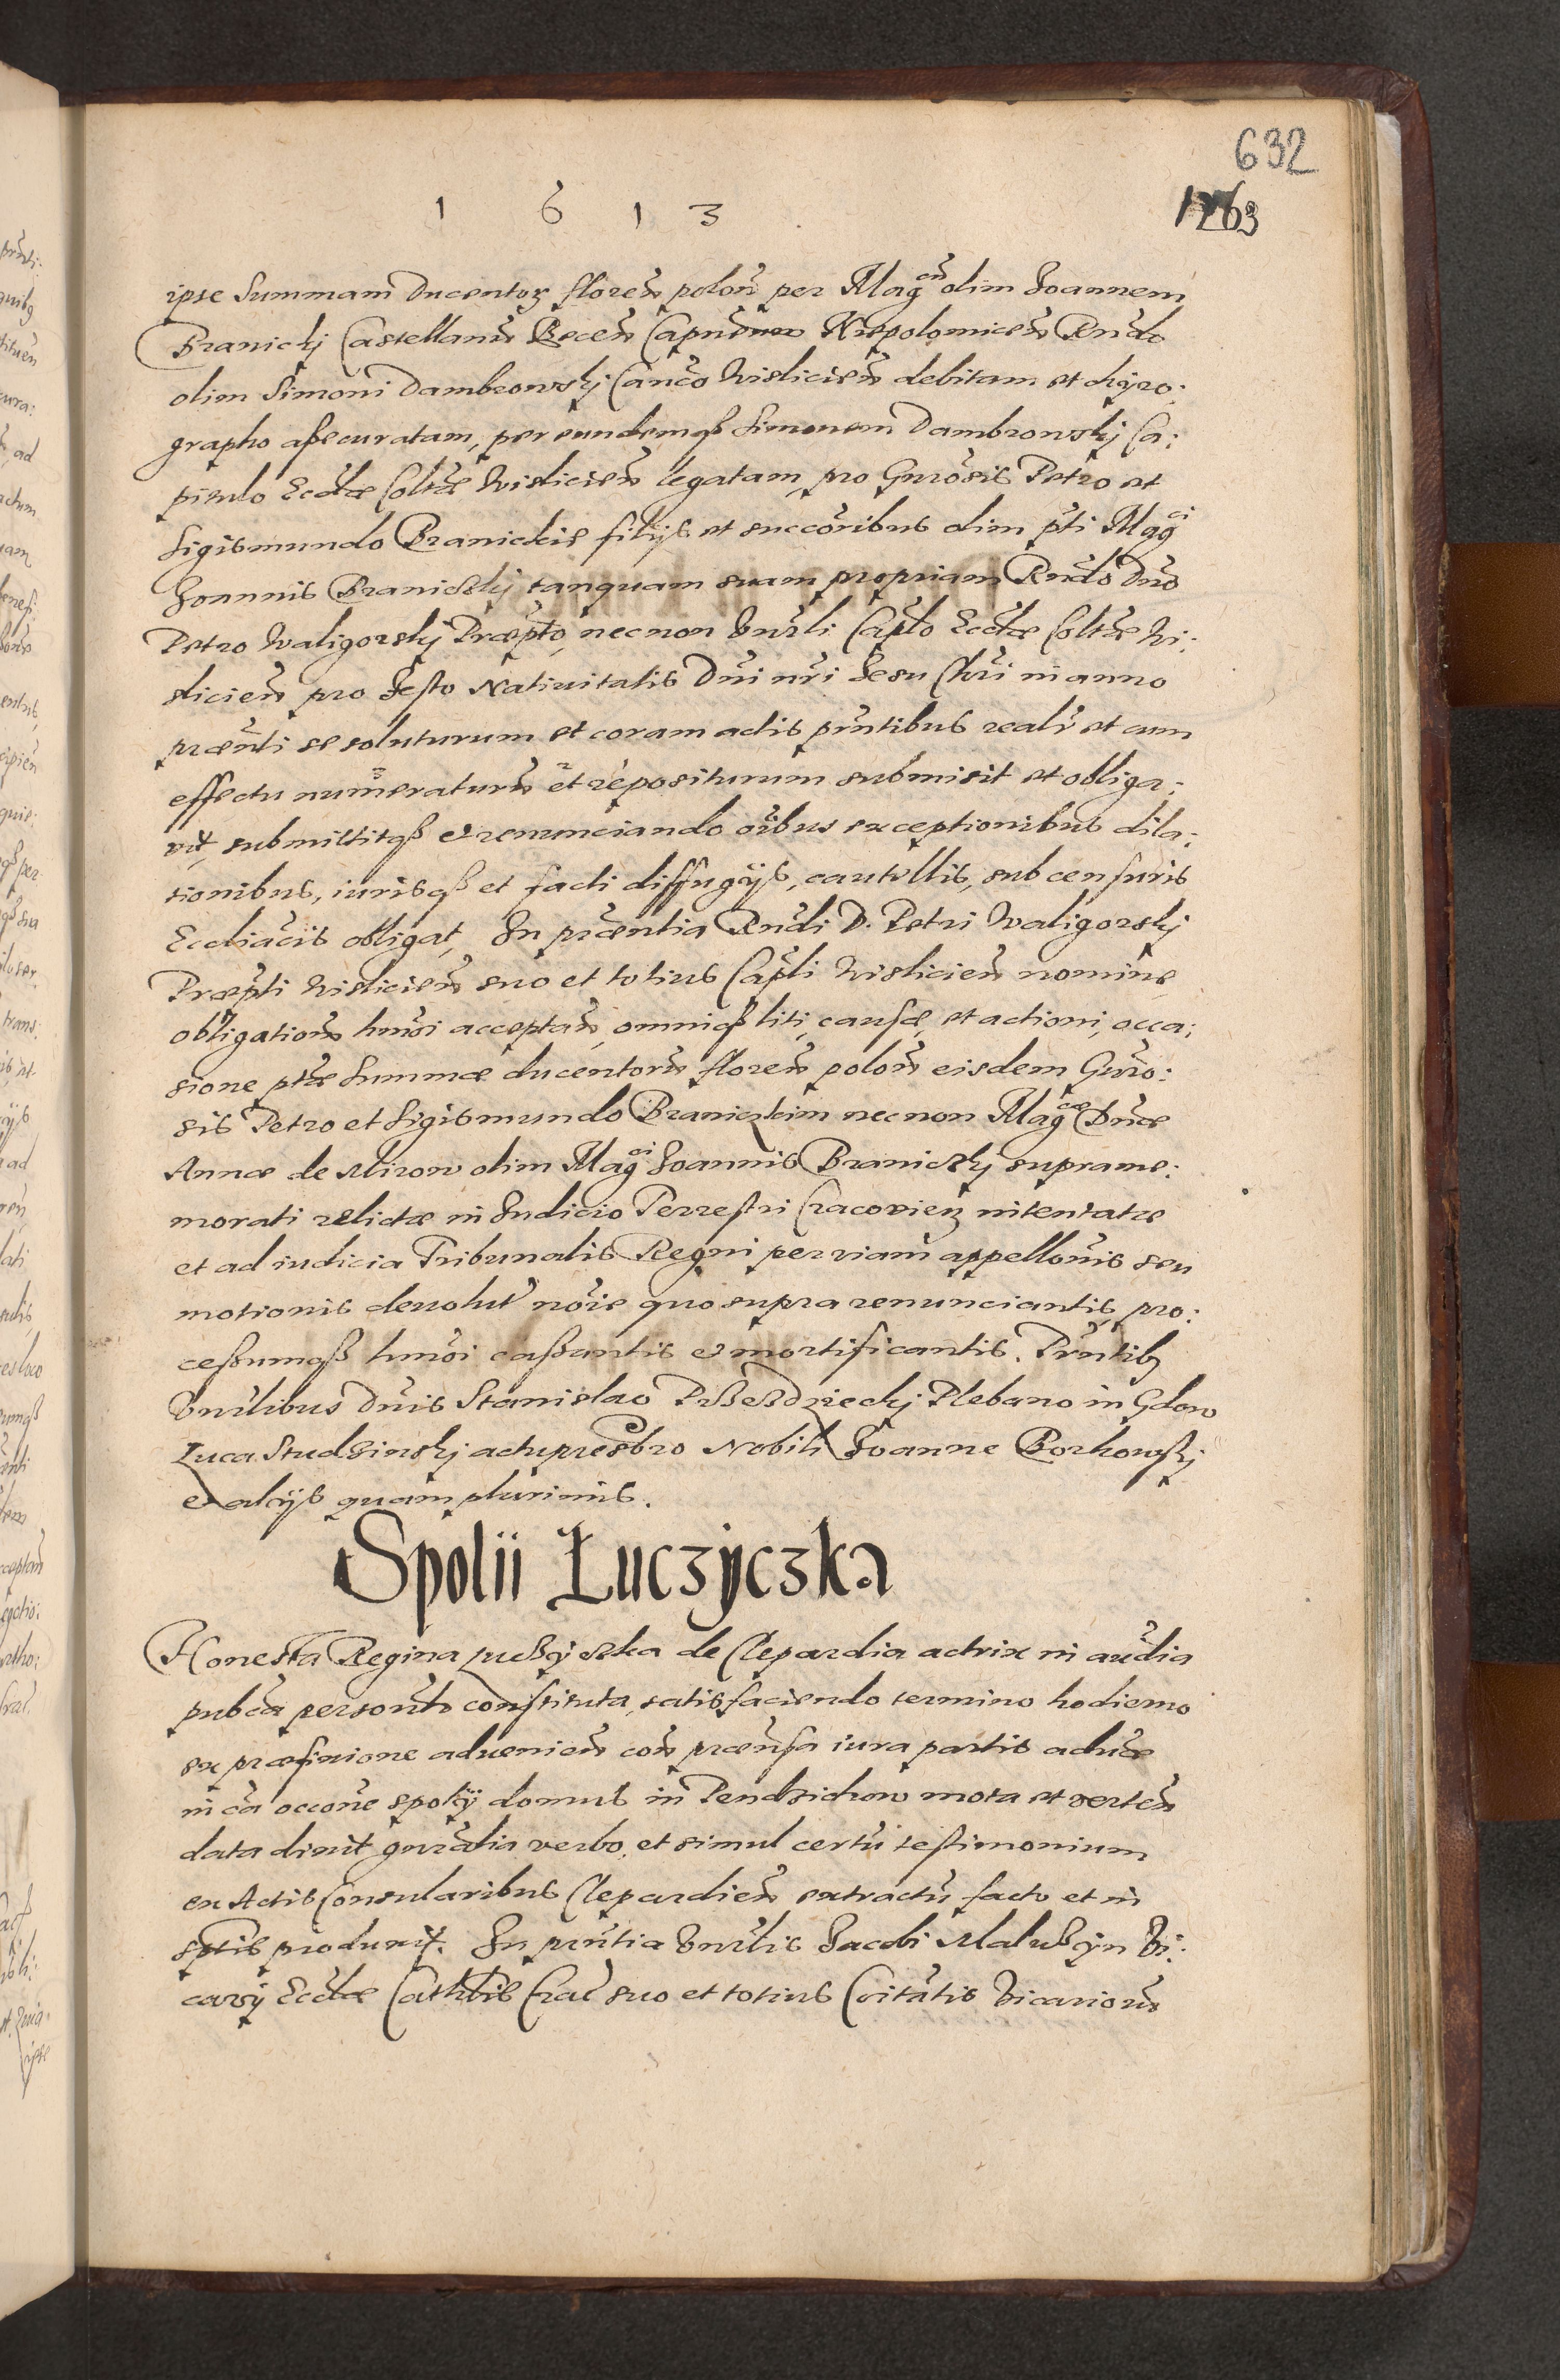 632
1 6 1 3
1263
ipse Summam Ducentoꝝ floreñ poloñ per Magcũ olim Joannem
Branicki Castellanũ Beceñ Niepolomiceñ Rndo
olim Simoni Dambrowskj Canco Wislicieñ debitam et chyro:
grapho assecuratam, per eundemqß Simonem Dambrowskj Ca:
pitulo Ecclae Coltae Wislicieñ legatam, pro Gnrosis Petro et
Sigismundo Branickis filijs et succoribus olim pti Magci
Joannis Branickj tanquam suam propriam Rndo Dno
Petro Waligorskj Praepto, necnon Vnrli Caplo Ecclae Coltae Wi:
slicieñ pro Festo Natiuitatis Dni nri Jesu Chri in anno
praenti se soluturum et coram actis pntibus realr et cum
effectu numeraturũ et repositurum submisit et obliga:
uit, submittitqß et renunciando oibus exceptionibus dila:
tionibus, iurisqß et facti diffugijs, cautellis, sub censuris
Eccliacis obligat, In praentia Rndi D. Petri Waligorskj
Praepti Wislicieñ suo et totius Capli Wislicieñ nomine
obligationẽ hmoi acceptañ, omniqß liti, causae, et actioni, occa:
sione ptae Summae ducentorũ floreñ poloñ eisdem Gnro:
sis Petro et Sigismundo Branickim necnon Magcae Dnae
Annae de Mirow olim Magci Joannis Branickj suprame:
morati relictae in Judicio Terrestri Cracovieñ intentatae
et ad iudicia Tribunalis Regni per viam appellonis seu
motionis deuolut noie quo supra renunciantis, pro:
cessumqß hmoi cassantis et mortificantis. Pntibꝫ
Vnrlibus Dnis Stanislao Przezdzieckj Plebano in Gdow
Luca Studzinskj actupresbro Nobili Joanne Borkowskj
et alijs quam plurimis.
Spolii Łuczÿczka
Honesta Regina Luczyczka de Clepardia actrix in audia
pubca personlr constituta, satisfaciendo termino hodierno
ex praefixione adueniẽ con praensa iura partis aduae
in ca occone spolij domus in Pendzichow mota et verteñ
data dixit gnralia verbo, et simul certũ testimonium
ex Actis Consularibus Clepardieñ extractũ facto et in
sptis produxit. In pntia Vnrlis Jacobi Vi:
carij Ecclae Cathlis Crac suo et totius Coitatis Vicariorũ